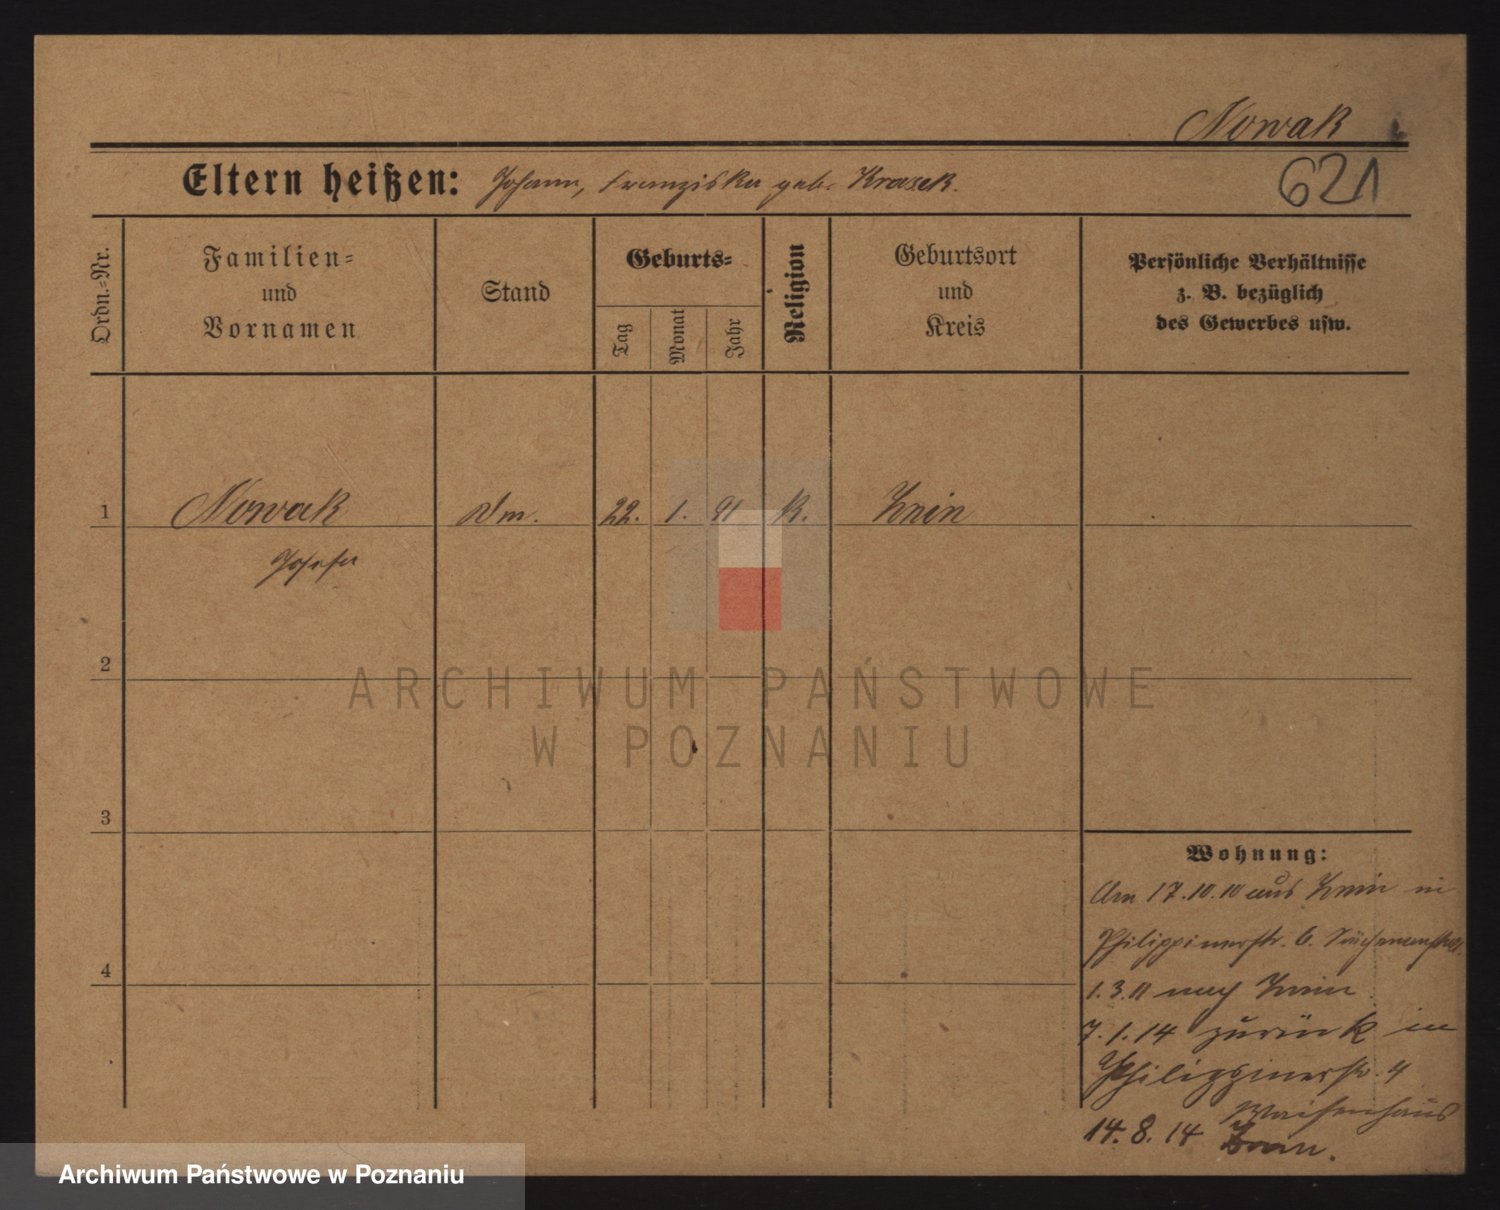 Nowak
621
Eltern heißen: Johann, Franziska geb. Krazek.
Ordn.-Nr.
Familien-
und
Vornamen
Stand
Geburts-
Tag
Monat
Jahr
Religion
Geburtsort
und
Kreis
Persönliche Verhältnisse
z. B. bezüglich
des Gewerbes usw.
1 Nowak 22. 1. 91 k. Znin
Josefa
2
ARCHIWUM PAŃSTWOWE
W POZNANIU
3
Wohnung:
Am 17.10.10 aus Znin in
Philippinerstr. 6.
4
1.3.11 nach Znin
7.1.14 zurück in
Philippinerstr. 4
Waisenhaus
14.8.14 Znin.
Archiwum Państwowe w Poznaniu